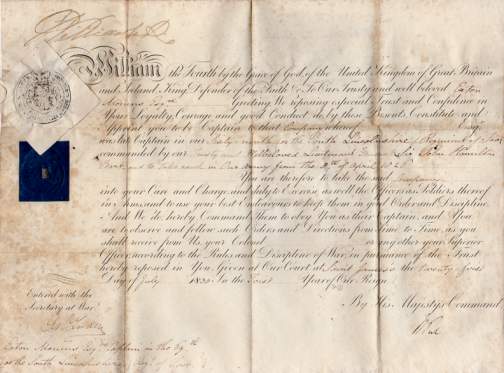 William R
William the Fourth by the Grace of God, of the United Kingdom of Great Britain
and Ireland King, Defender of the Faith &c. To Our Trusty and well beloved Eaton
Monins Esqr Greeting: We reposing especial Trust and Confidence in
Your Loyalty, Courage and good Conduct, do, by these Presents, Constitute and
Appoint you to be Captain of that Company whereof Esq.
was late Captain in our Sixty ninth or the South Lincolnshire Regiment of Foot
commanded by our Trusty and Wellbeloved Lieutenant General Sir John Hamilton
Bart and to take rank in Our Army from the of April
You are therefore to take the said Company
into your Care and Charge, and duly to Exercise as well the Officers as Soldiers thereof
in Arms, and to use your best Endeavours to keep them in good Order and Discipline
And We do hereby Command them to obey You as their Captain, and You
are to observe and follow such Orders and Directions from Time to Time, as you
shall receive from Us, your Colonel or any other your Superior
Officer, according to the Rules and Discipline of War, in pursuance of the Trust
hereby reposed in You. Given at Our Court at Saint James's the twenty first
Day of July 1830 In the First Year of Our Reign
By His Majesty's Command
Entered with the
Secretary at War
R Peel
Eaton Monins Esqr Captain in the 69th
or the South Lincolnshire Regt of Foot